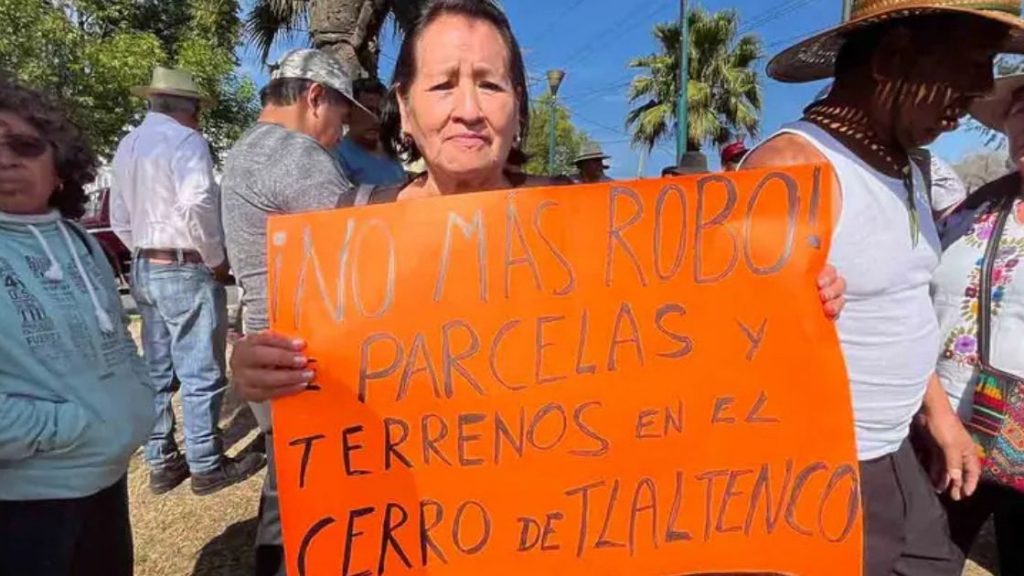 ¡NO MÁS ROBO!
E PARCELAS Y
TERRENOS EN EL
CERRO DE TLALTENCO